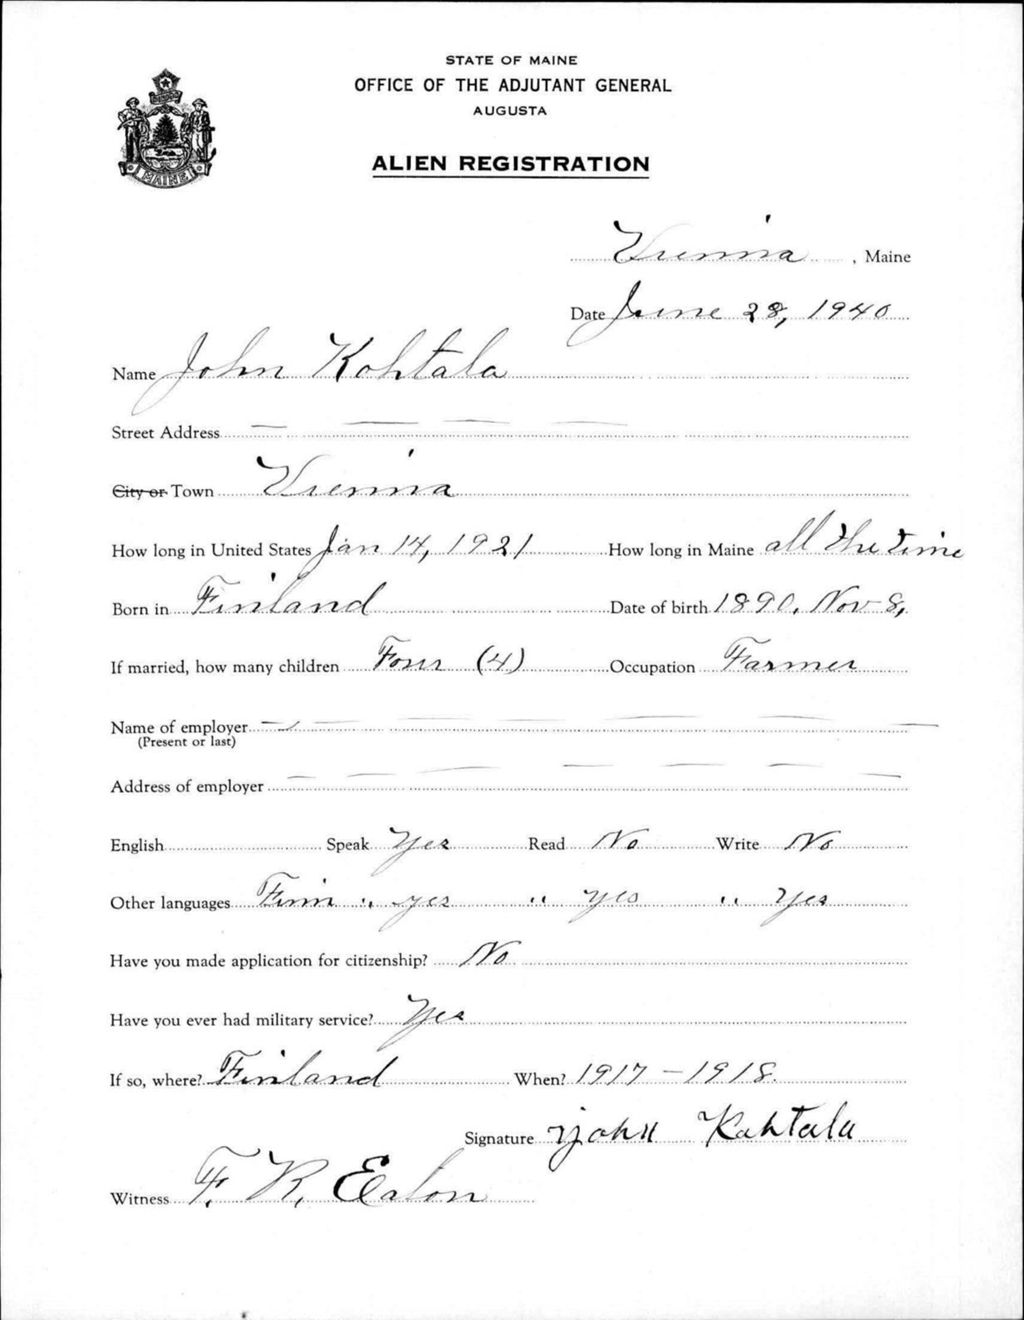 STATE OF MAINE
OFFICE OF THE ADJUTANT GENERAL
AUGUSTA
MAINE
ALIEN REGISTRATION
Vienna, Maine
Date June 28, 1940
Name John Kohtala
Street Address
City or Town Vienna
How long in United States Jan 14, 1921 How long in Maine all the time
Born in Finland Date of birth 1890, Nov 8,
If married, how many children Four (4) Occupation Farmer
Name of employer
(Present or last)
Address of employer
English Speak Yes Read No Write No
Other languages Finn " yes " yes " Yes
Have you made application for citizenship? No
Have you ever had military service? Yes
If so, where? Finland When? 1917 - 1918.
Signature John Kohtala
Witness F. R.